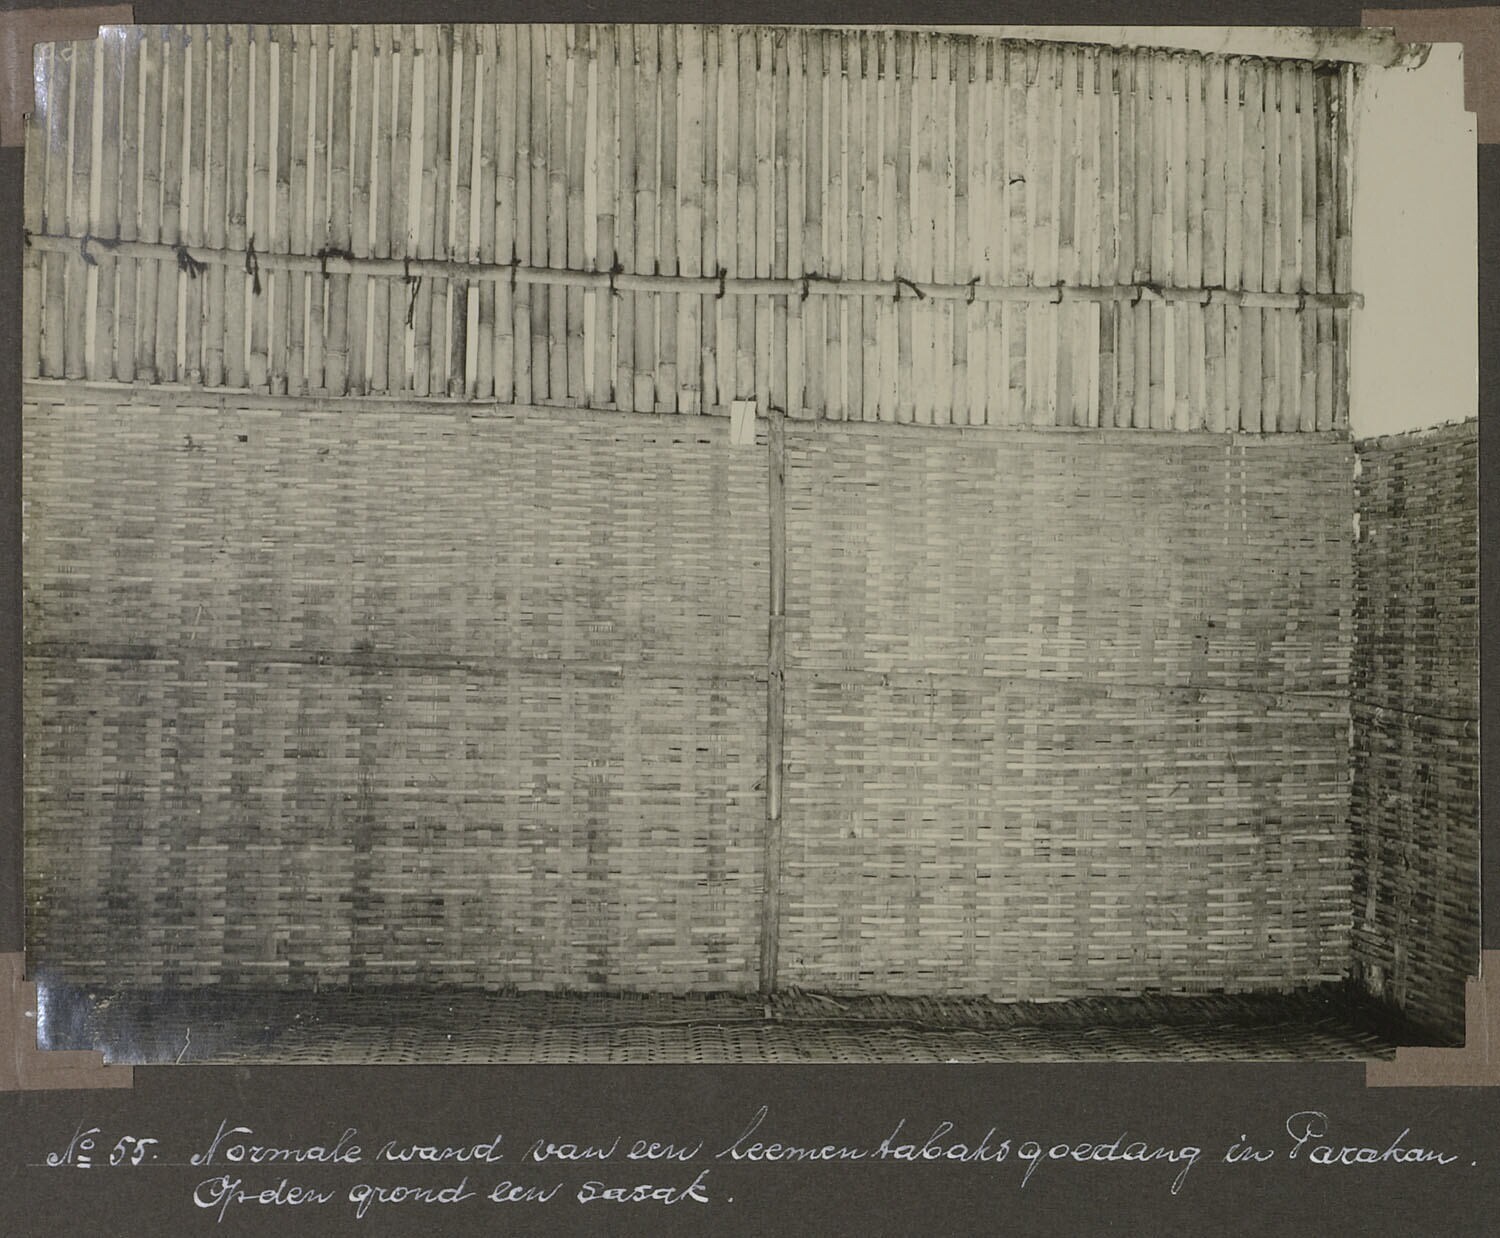 № 55. Normale wand van een leemen tabaksgoedang in Parakan.
Op den grond een sasak.